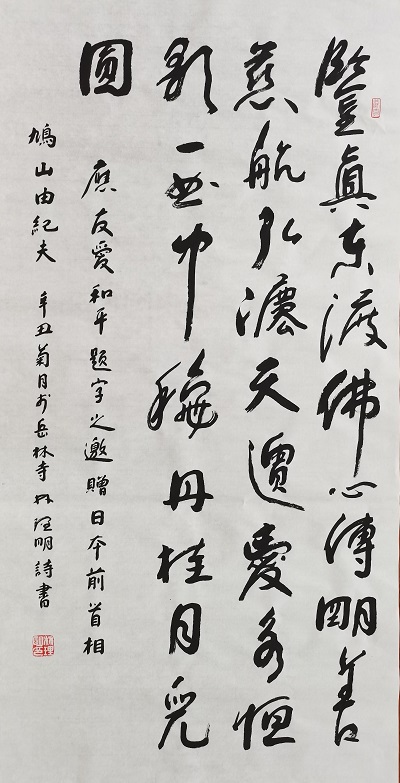 鑒真東渡佛心傳明善
慈航弘灋天遺愛永恒
歌一曲中穐丹桂月兒
圓
應友愛和平題字之邀贈日本前首相
鳩山由紀夫 辛丑菊月於岳林寺林理明詩書